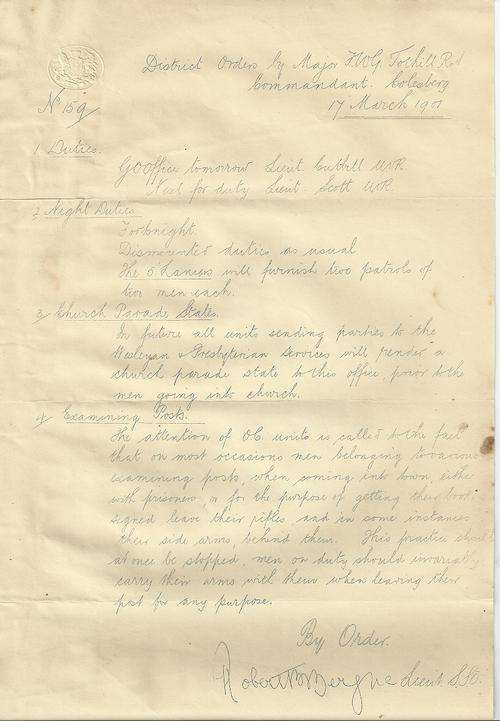 District Orders by Major
Commandant. Colesberg
17 March 1901
No 159
1 Duties.
Office tomorrow Lieut Cuthill WR.
Next for duty Lieut Scott WR.
2 Night Duties
For tonight.
Dismounted duties as usual
The Lancers will furnish two patrols of
two men each.
3 Church Parade States.
In future all units sending parties to the
Wesleyan & Presbyterian Services will render a
church parade state to this office prior to the
men going into church.
4 Examining Posts.
The attention of O.C. units is called to the fact
that on most occasions men belonging to various
examining posts, when coming into town, either
with prisoners or for the purpose of getting their book
signed leave their rifles and in some instances
their side arms behind them. This practice should
at once be stopped, men on duty should invariably
carry their arms with them when leaving their
post for any purpose.
By Order.
Robert Bergne Lieut S.O.